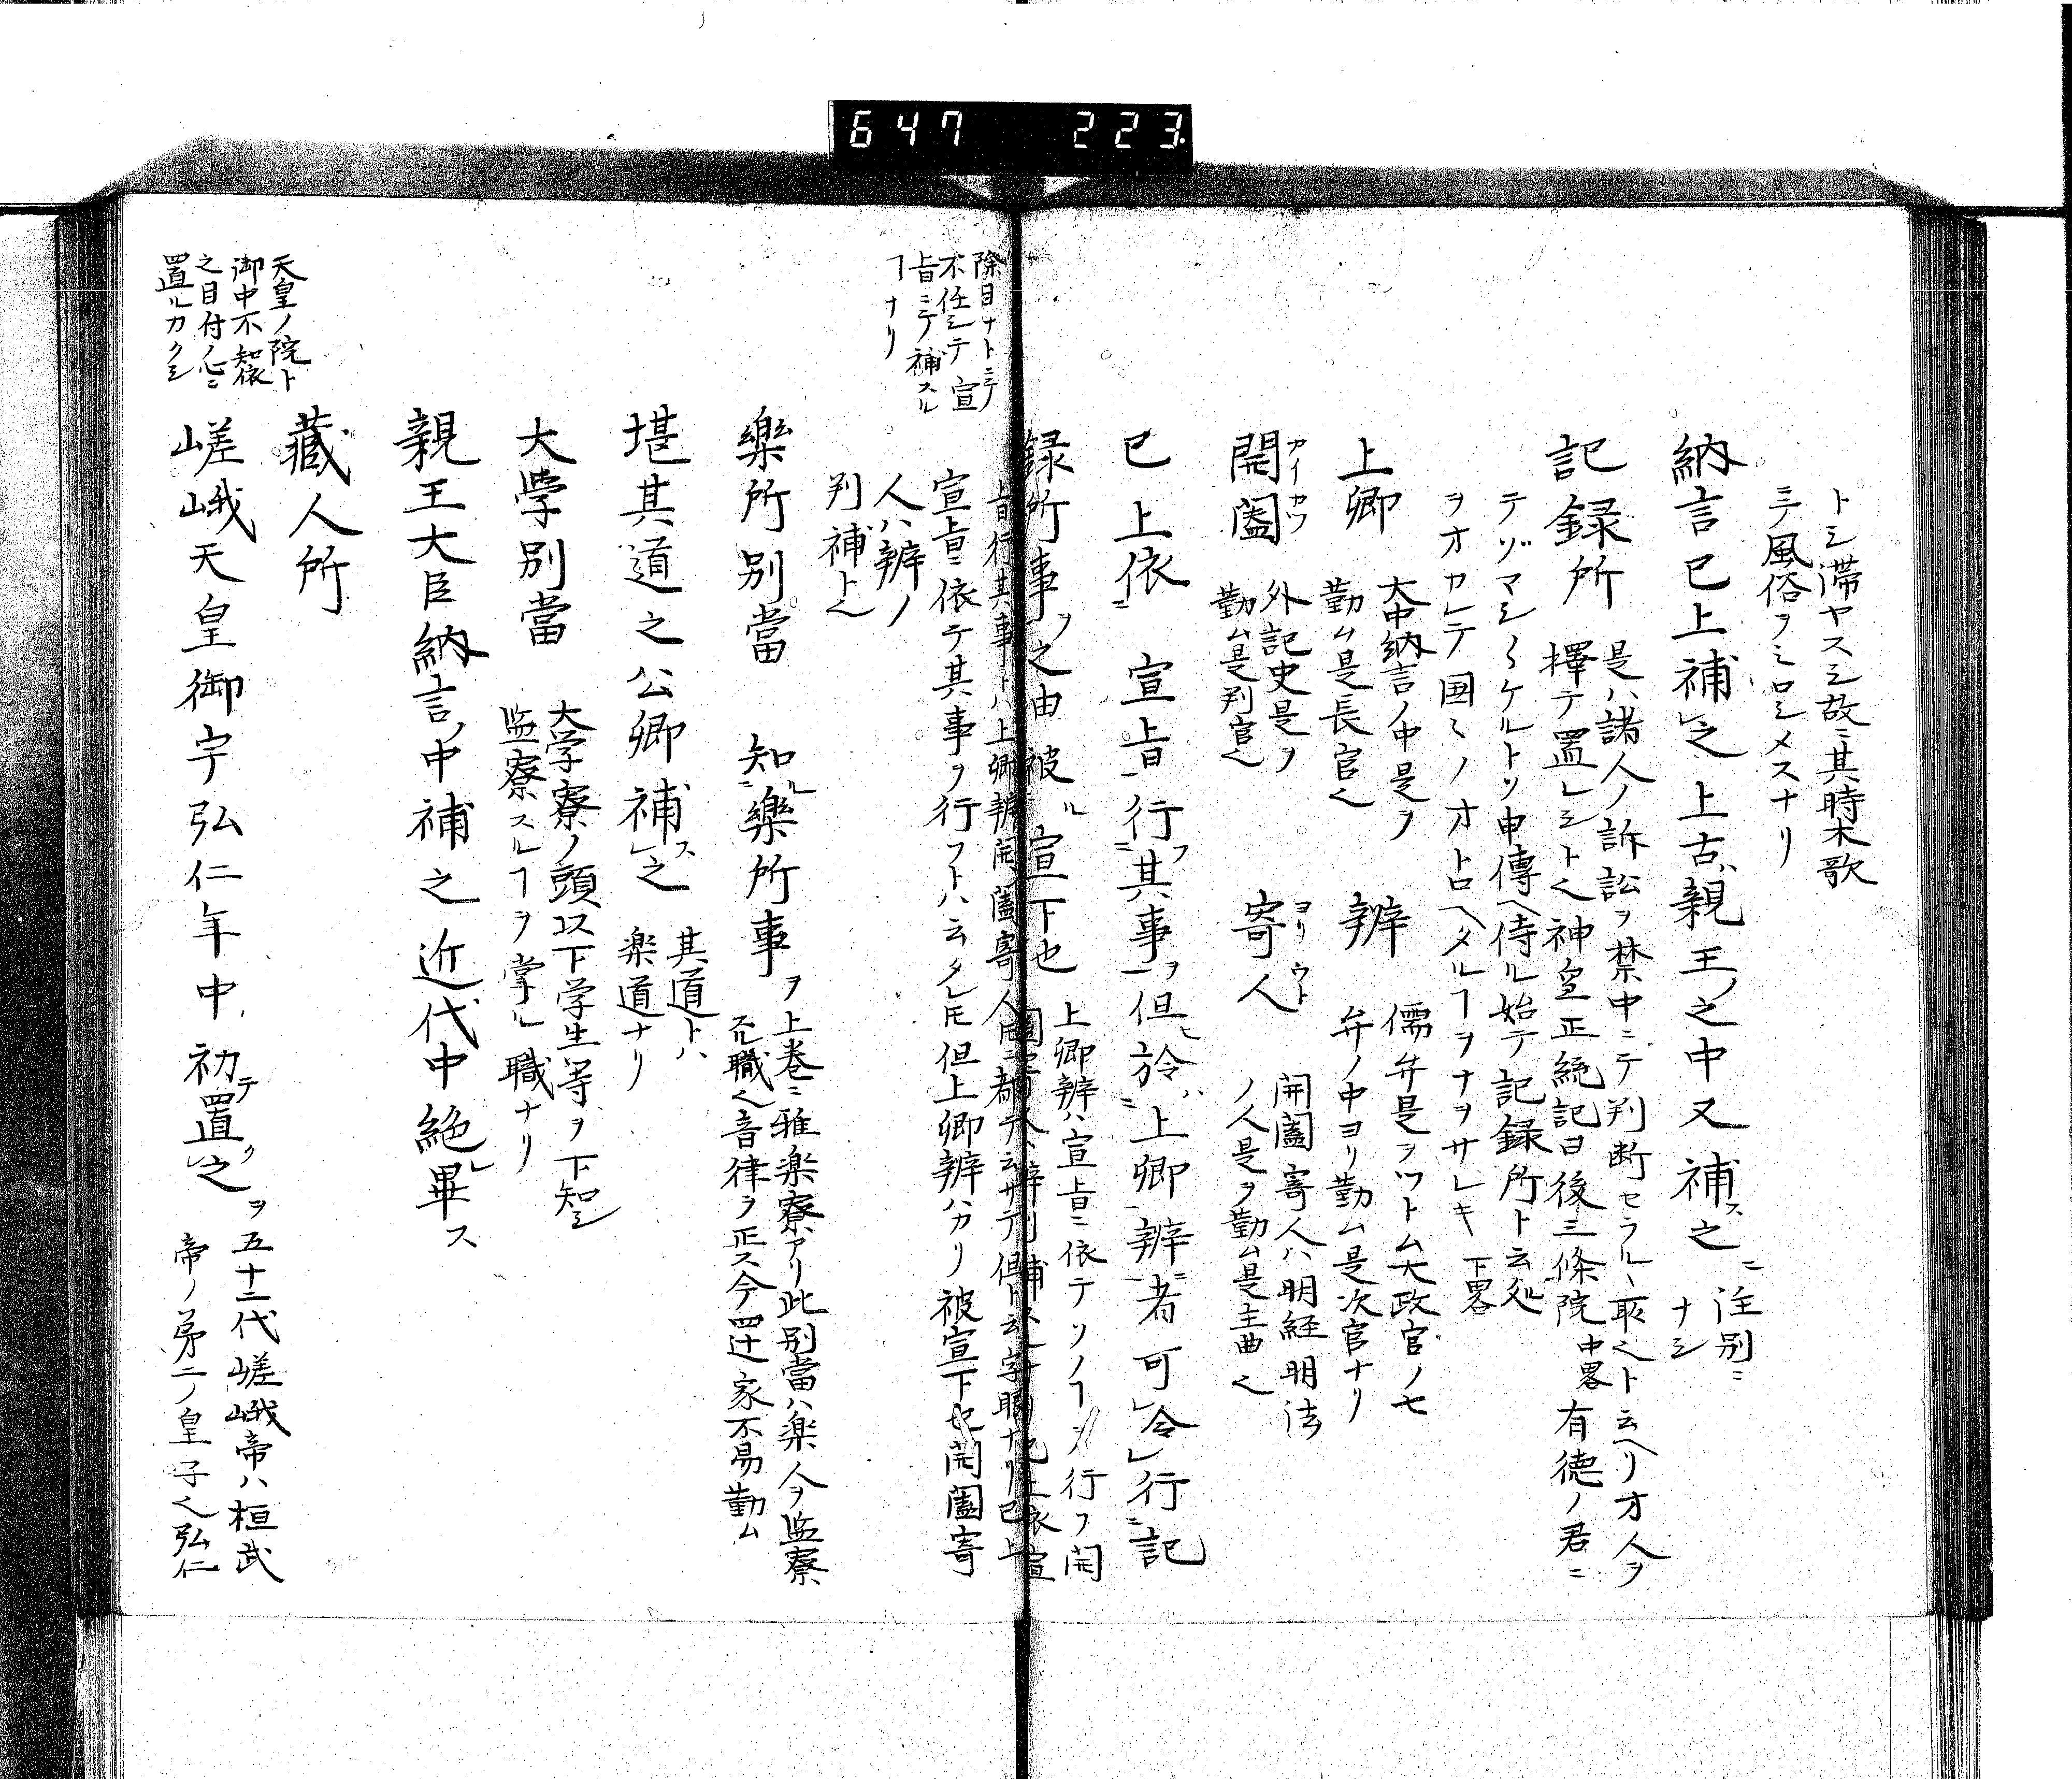 647 223
トシ滞ヤスシ故ニ其時木歌
ニテ風俗ヲシロシメスナリ
納言已上補之上古親王之中又補之
注別ニ
ナシ
記録所
是ハ諸人ノ訴訟ヲ禁中ニテ判断セラルヽ取之ト云ヘリ才人ヲ
擇テ置レシトヘ神皇正統記曰後三條院中畧有徳ノ君ニ
テゾマシ〳〵ケルトソ申傳ヘ侍ル始テ記録所ト云処
ヲオカレテ国〻ノオトロヘタルヿヲナヲサレキ下畧
上卿
大中納言ノ中是ヲ
勤ム是長官ヘ
辨
儒弁是ヲツトム大政官ノ七
弁ノ中ヨリ勤ム是次官ナリ
開闔
カイカツ
外記史是ヲ
勤ム是判官ヘ
寄人
ヨリウト
開闔寄人ハ明経明法
ノ人是ヲ勤ム是主曲ヘ
已上依宣旨行其事ヲ但於上卿辨者可令行記
録所事之由被宣下也
上卿辨ハ宣旨ニ依テソノヿヲ行フ開
上旨行其事トハ上卿辨開闔寄人
宣旨ニ依テ其事ヲ行フトハ云タレ𪜈但上卿辨ハカリ被宣下也開闔寄
人ハ辨ノ
判補トヘ
除目ナトニテ
不任シテ宣
旨ニテ補スル
ヿナリ
樂所別當
知樂所事ヲ
上巻ニ雅楽寮アリ此別當ハ楽人ヲ監察
スル職ヘ音律ヲ正ス今四辻家不易勤ム
堪其道之公卿補之
其道トハ
楽道ナリ
大学別當
大学寮ノ頭以下学生等ヲ下知シ
監察スルヿヲ掌ル職ナリ
親王大臣納言ノ中補之近代中絶畢ス
藏人所
天皇ノ院ト
御中不知依
之目付ノ心ニ
置ルカクシ
嵯峨天皇御宇弘仁年中初テ置之ヲ
五十二代嵯峨帝ハ桓武
帝ノ第二ノ皇子ヘ弘仁